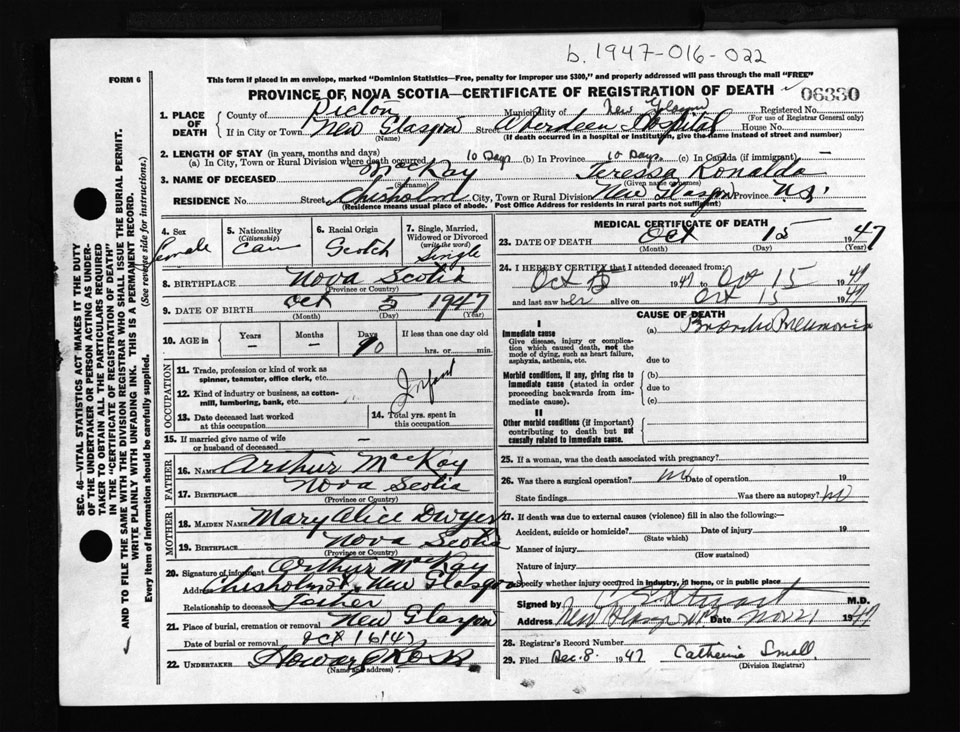 b. 1947-016-022
FORM 6
This form if placed in an envelope, marked "Dominion Statistics—Free, penalty for improper use $300," and properly addressed will pass through the mail "FREE"
PROVINCE OF NOVA SCOTIA—CERTIFICATE OF REGISTRATION OF DEATH
06330
1. PLACE OF DEATH
County of Pictou Municipality of New Glasgow Registered No.
(For use of Registrar General only)
If in City or Town New Glasgow Street Aberdeen Hospital House No.
(Name) (If death occurred in a hospital or institution, give the name instead of street and number)
2. LENGTH OF STAY (in years, months and days)
(a) In City, Town or Rural Division where death occurred 10 Days (b) In Province 10 Days. (c) In Canada (if immigrant) —
3. NAME OF DECEASED MacKay Teressa Ronalda
(Surname) (Given name or names)
RESIDENCE No. Street Chisholm City, Town or Rural Division New Glasgow Province N.S.
(Residence means usual place of abode. Post Office Address for residents in rural parts not sufficient)
4. Sex Female
5. Nationality (Citizenship) Can
6. Racial Origin Scotch
7. Single, Married, Widowed or Divorced (write the word) Single
8. BIRTHPLACE Nova Scotia
(Province or Country)
9. DATE OF BIRTH Oct 5 1947
(Month) (Day) (Year)
10. AGE in Years — Months — Days 10 If less than one day old hrs. or min.
OCCUPATION
11. Trade, profession or kind of work as spinner, teamster, office clerk, etc. Infant
12. Kind of industry or business, as cotton-mill, lumbering, bank, etc.
13. Date deceased last worked at this occupation
14. Total yrs. spent in this occupation
15. If married give name of wife or husband of deceased —
FATHER
16. NAME Arthur MacKay
17. BIRTHPLACE Nova Scotia
(Province or Country)
MOTHER
18. MAIDEN NAME Mary Alice Dwyer
19. BIRTHPLACE Nova Scotia
(Province or Country)
20. Signature of informant Arthur MacKay
Address Chisholm St. New Glasgow
Relationship to deceased Father
21. Place of burial, cremation or removal New Glasgow
Date of burial or removal Oct 16 1947
22. UNDERTAKER Howard Ross
(Name and address)
MEDICAL CERTIFICATE OF DEATH
23. DATE OF DEATH Oct 15 1947
(Month) (Day) (Year)
24. I HEREBY CERTIFY that I attended deceased from:
Oct 5 1947 to Oct 15 1947
and last saw her alive on Oct 15 1947
CAUSE OF DEATH
I
Immediate cause
Give disease, injury or complication which caused death, not the mode of dying, such as heart failure, asphyxia, asthenia, etc.
(a) Broncho Pneumonia
due to
Morbid conditions, if any, giving rise to immediate cause (stated in order proceeding backwards from immediate cause).
(b)
due to
(c)
II
Other morbid conditions (if important) contributing to death but not causally related to immediate cause.
25. If a woman, was the death associated with pregnancy?
26. Was there a surgical operation? no Date of operation 19
State findings Was there autopsy? no
27. If death was due to external causes (violence) fill in also the following:—
Accident, suicide or homicide? Date of injury 19
(State which)
Manner of injury
(How sustained)
Nature of injury
Specify whether injury occurred in industry, in home, or in public place
Signed by Stuart M.D.
Address New Glasgow NS Date Nov 21 1947
28. Registrar's Record Number
29. Filed Dec. 8. 1947 Catherine Small.
(Division Registrar)
SEC. 46—VITAL STATISTICS ACT MAKES IT THE DUTY
OF THE UNDERTAKER OR PERSON ACTING AS UNDER-
TAKER TO OBTAIN ALL THE PARTICULARS REQUIRED
IN THE "CERTIFICATE OF REGISTRATION OF DEATH"
AND TO FILE THE SAME WITH THE DIVISION REGISTRAR WHO SHALL ISSUE THE BURIAL PERMIT.
WRITE PLAINLY WITH UNFADING INK. THIS IS A PERMANENT RECORD.
Every item of information should be carefully supplied. (See reverse side for instructions.)